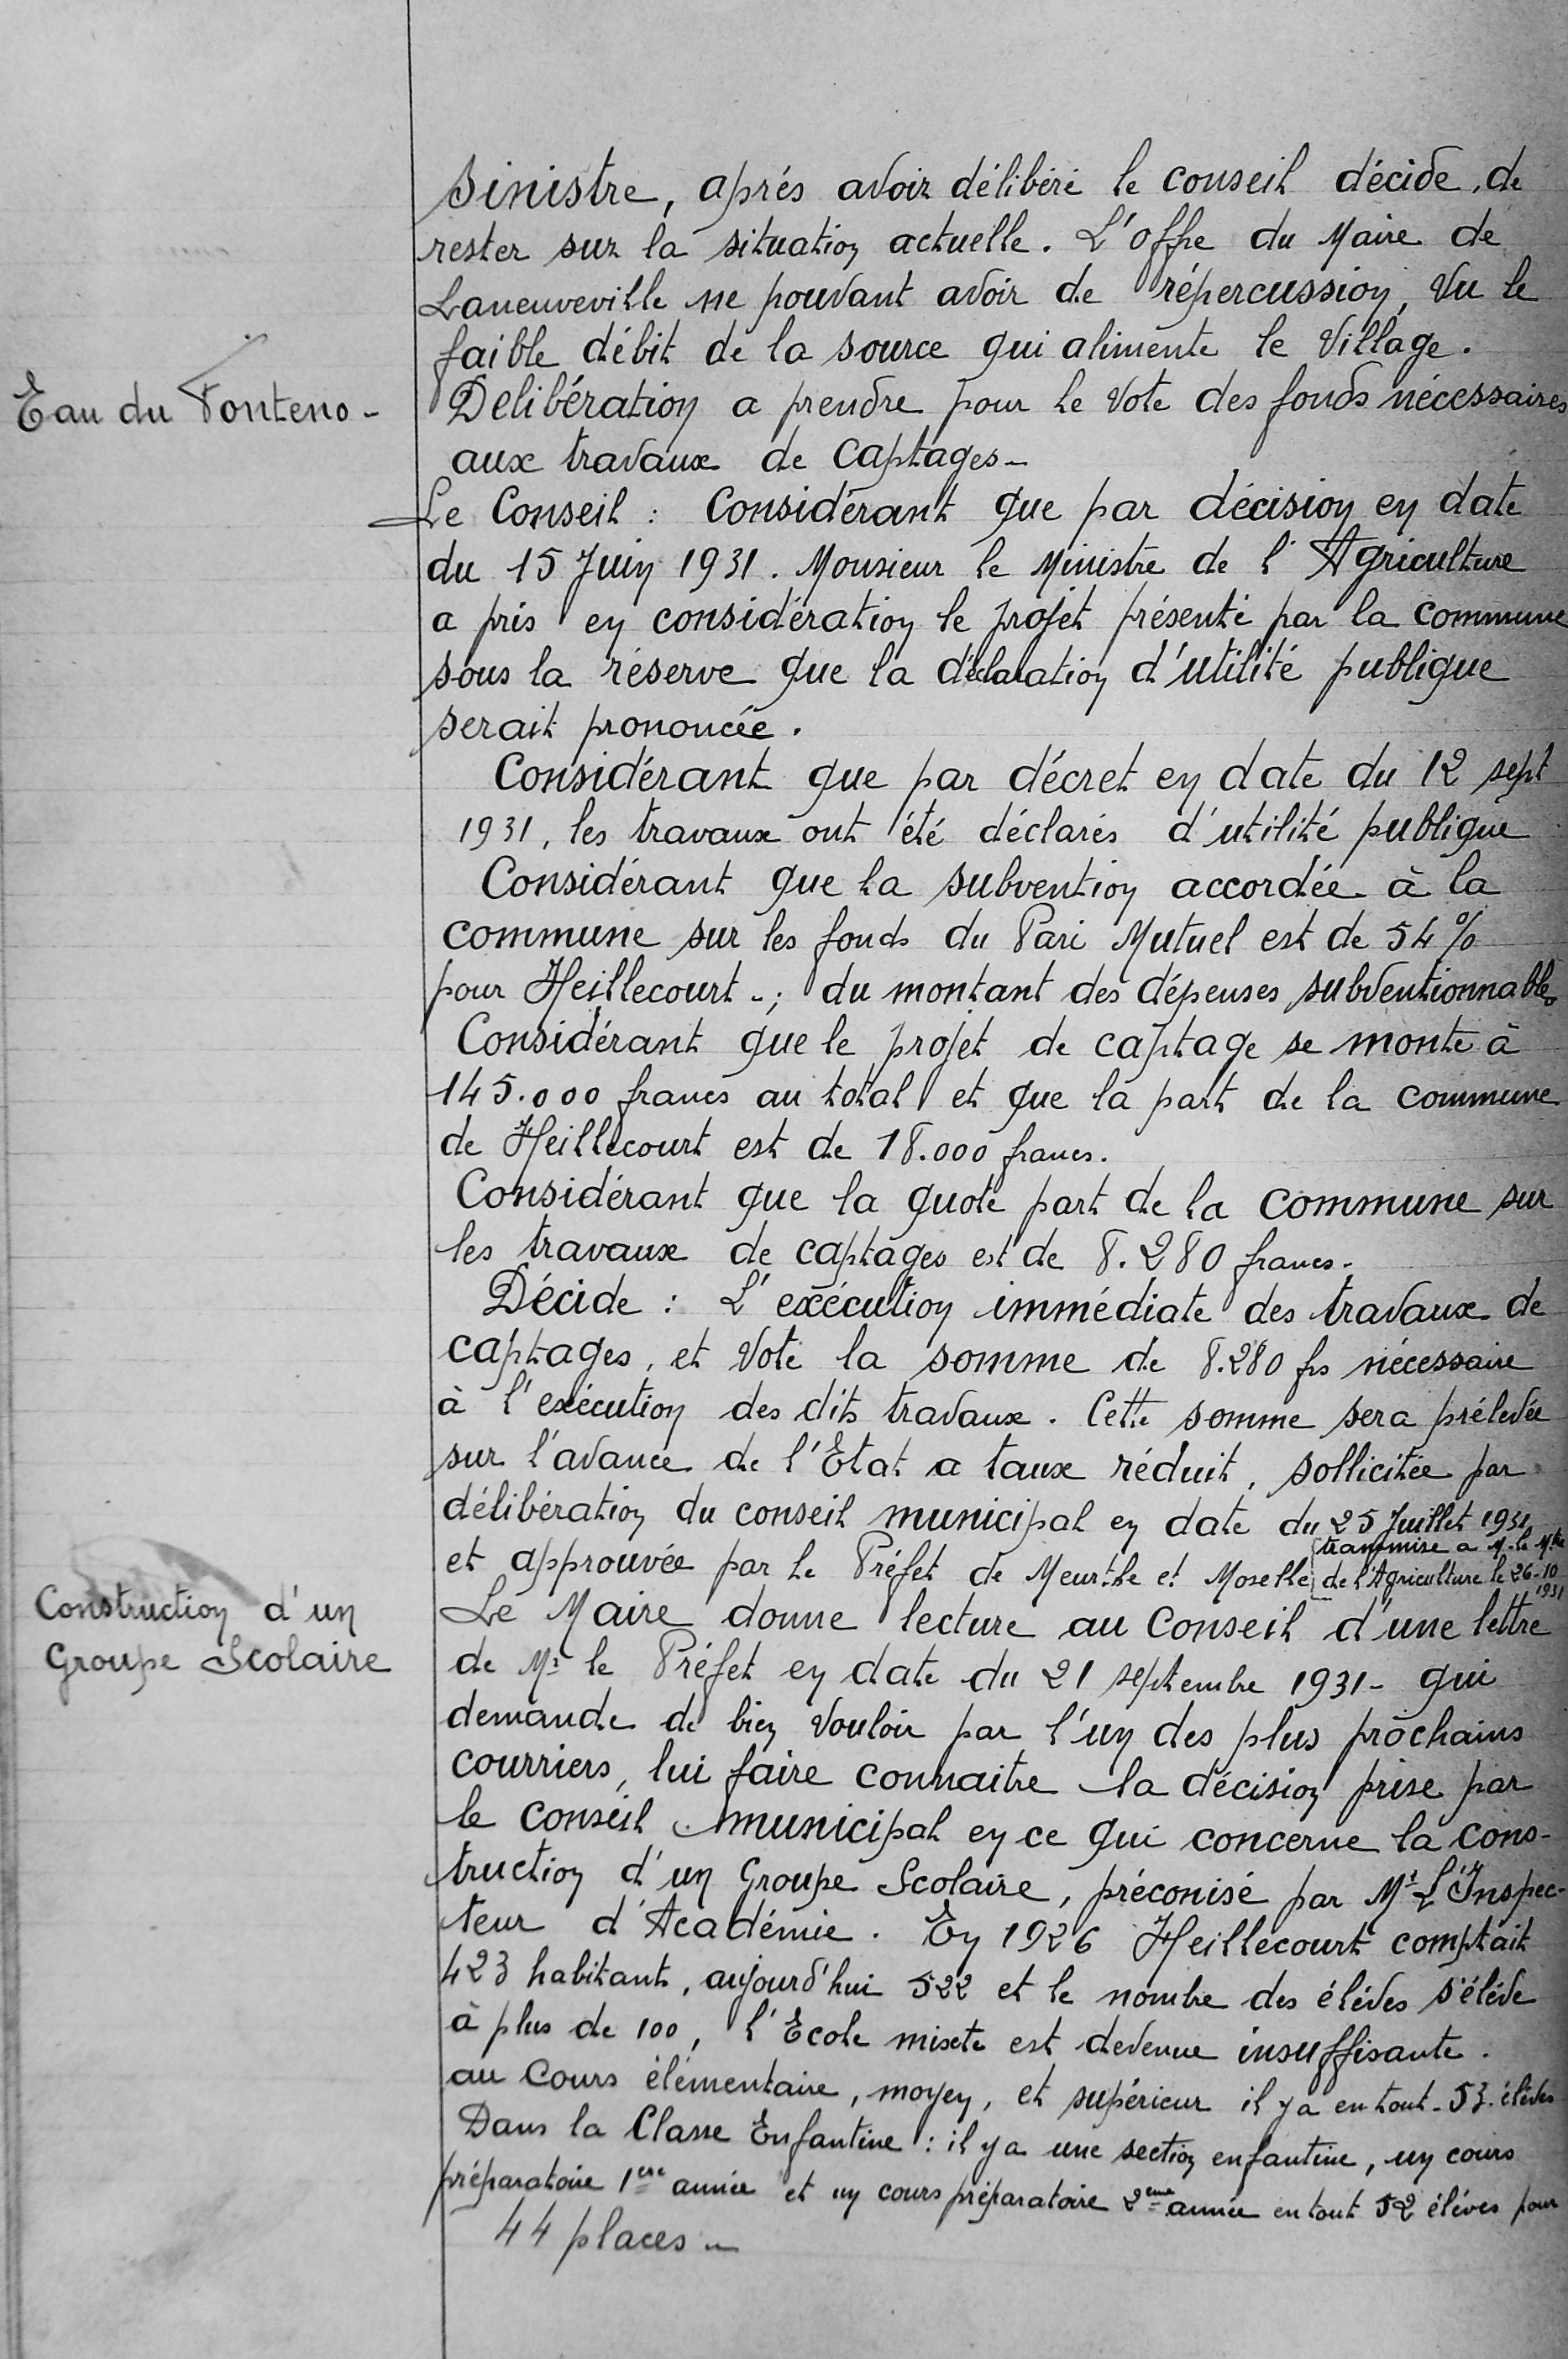 sinistre, aprés avoir délibéré le conseil décide, de
rester sur la situation actuelle. L'offre du Maire de
Laneuveville ne pouvant avoir de répercussion, vu le
faible débit de la source qui alimente le Village.
Eau du Fonteno -
Delibération a prendre pour le Vote des fonds nécessaires
aux travaux de captages -
Le Conseil : Considérant que par décision en date
du 15 Juin 1931. Monsieur le Ministre de l'Agriculture
a pris en considération le projet présenté par la commune
sous la réserve que la déclaration d'utilité publique
serait prononcée.
Considérant que par décret en date du 12 sept
1931, les travaux ont été déclarés d'utilité publique
Considérant que la subvention accordée à la
commune sur les fonds du Pari Mutuel est de 54 %
pour Heillecourt -; du montant des dépenses subventionnables
Considérant que le projet de captage se monte à
145.000 francs au total et que la part de la commune
de Heillecourt est de 18.000 francs.
Considérant que la quote part de la commune sur
les travaux de captages est de 8.280 francs.
Décide : L'exécution immédiate des travaux de
captages, et vote la somme de 8.280 frs nécessaire
à l'exécution des dits travaux. Cette somme sera prélevée
sur l'avance de l'Etat a taux réduit, sollicitée par
délibération du conseil municipal en date du 25 Juillet 1931
transmise a M. le Mtre
et approuvée par le Préfet de Meurthe et Moselle de l'Agriculture le 26-10
1931
Construction d'un
Groupe Scolaire
Le Maire donne lecture au Conseil d'une lettre
de Mr le Préfet en date du 21 septembre 1931 - qui
demande de bien vouloir par l'un des plus prochains
courriers, lui faire connaitre la décision prise par
le conseil municipal en ce qui concerne la cons-
truction d'un Groupe Scolaire, préconisé par Mr L'Inspec-
teur d'Académie. En 1926 Heillecourt comptait
423 habitants, aujourd'hui 522 et le nombre des éléves s'éléve
à plus de 100, l'Ecole mixte est devenue insuffisante.
au Cours élémentaire, moyen, et supérieur il y a en tout - 53 - éléves
Dans la Classe Enfantine : il y a une section enfantine, un cours
préparatoire 1ere année et un cours préparatoire 2eme année en tout 52 éléves pour
44 places -